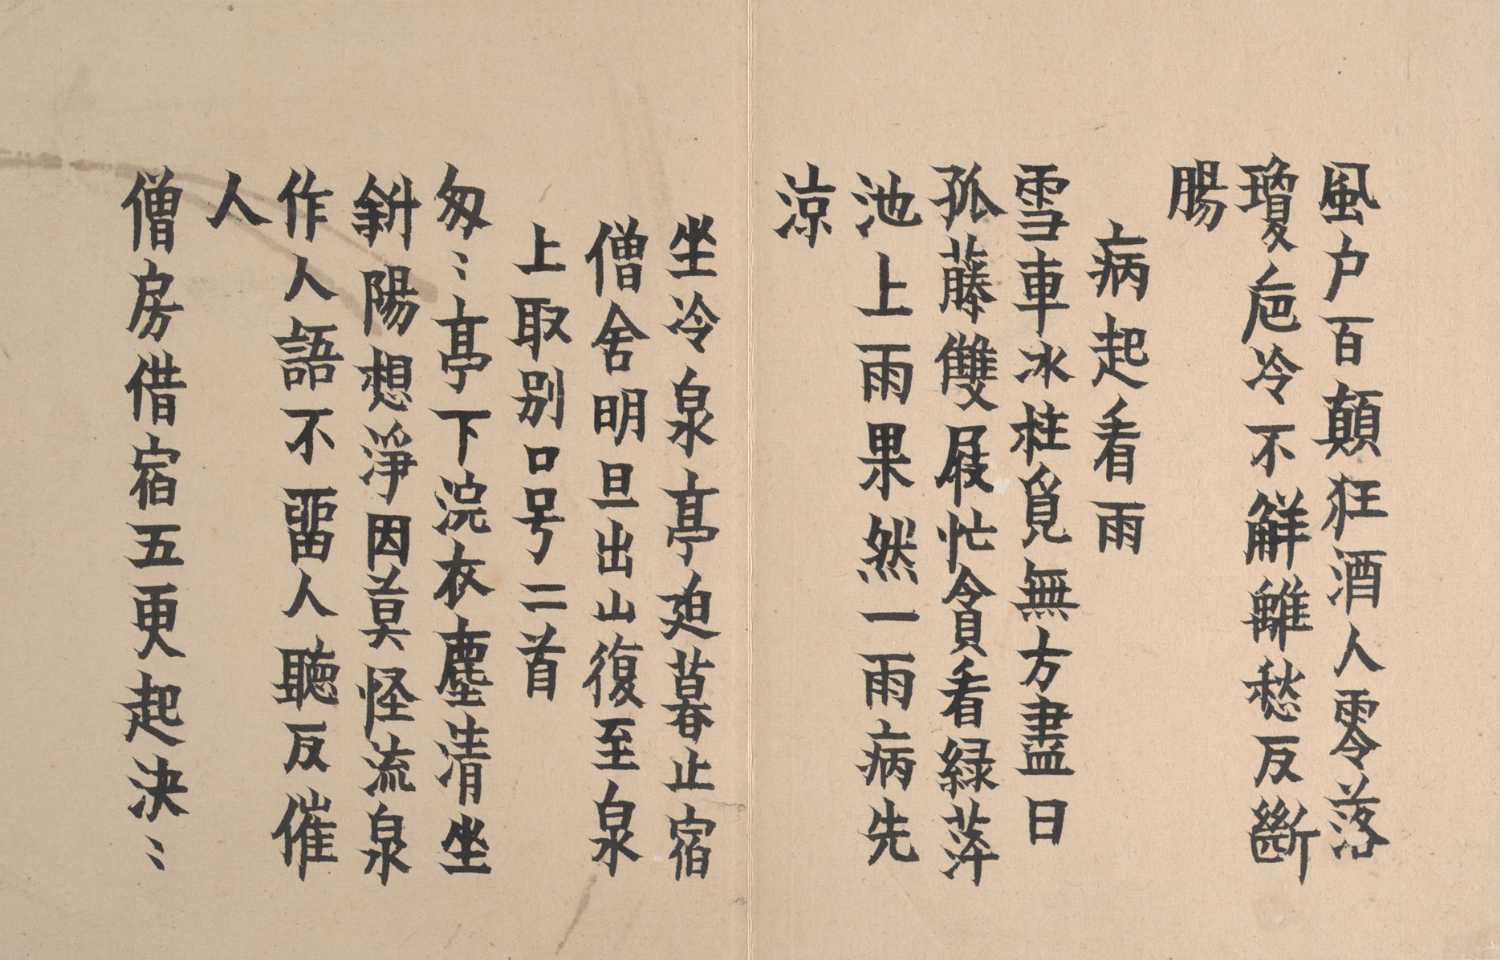 風户百顛狂酒人零落
瓊卮冷不觧離愁反斷
腸
病起看雨
雪車冰柱覓無方盡日
孤藤雙屐忙貪看緑萍
池上雨果然一雨病先
涼
坐冷泉亭迫暮止宿
僧舍明旦出山復至泉
上取别口号二首
匆〻亭下浣衣塵清坐
斜陽想淨因莫怪流泉
作人語不留人聽反催
人
僧房借宿五更起決〻